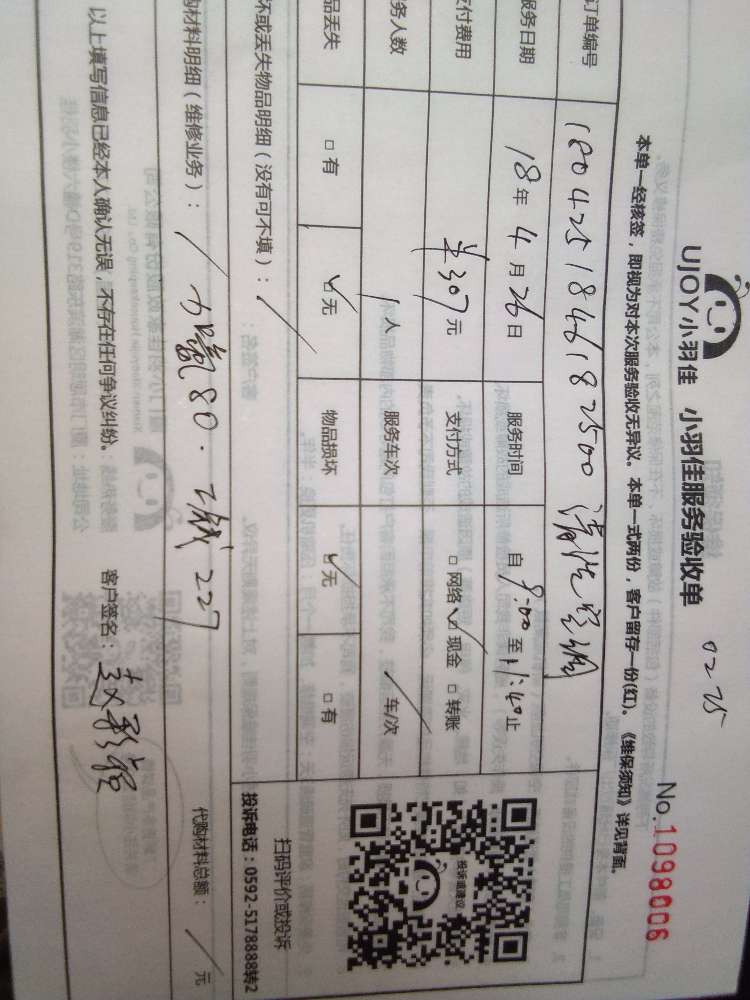 UJOY小羽佳 小羽佳服务验收单
0225
No.1098006
本单一经核签，即视为对本次服务验收无异议。本单一式两份，客户留存一份(红)。《维保须知》详见背面。
订单编号 1804251846182500 清洗空调
服务日期 18年4月26日 服务时间 自9:00至11:40止
支付费用 单307元 支付方式 □网络 ☑现金 □转账
务人数 1人 服务车次 / 车/次
品丢失 □有 ☑无 物品损坏 ☑无 □有
坏或丢失物品明细（没有可不填）： /
购材料明细（维修业务）： / 80. 227
代购材料总额： / 元
以上填写信息已经本人确认无误，不存在任何争议纠纷。 客户签名：赵
投诉或建议
扫码评价或投诉
投诉电话：0592-5178888转2